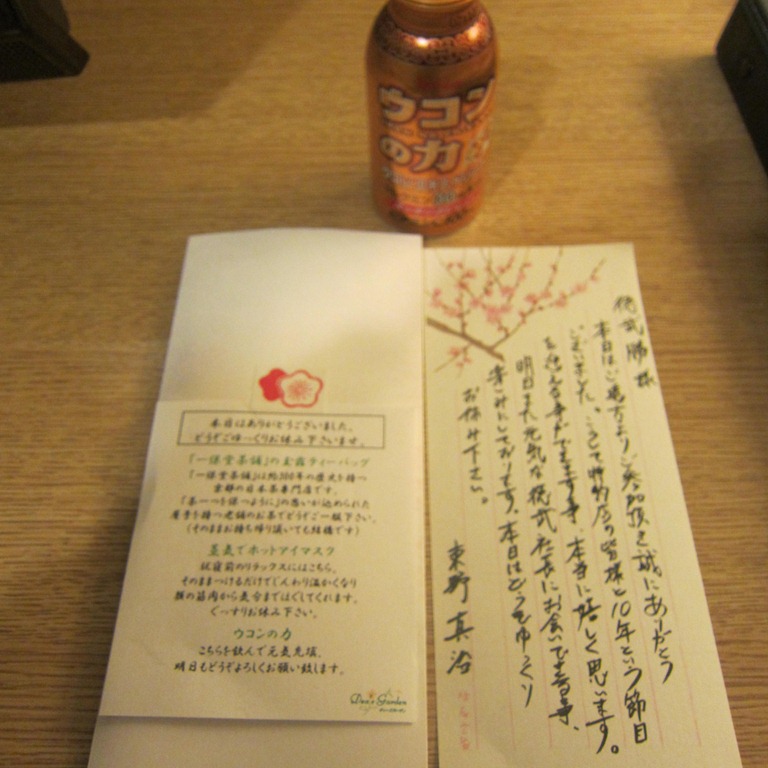 ウコン
の力
本日はありがとうございました。
どうぞごゆっくりお休み下さいませ。
「一保堂茶舗」の玉露ティーバッグ
「一保堂茶舗」は約300年の歴史を持つ
京都の日本茶専門店です。
「茶一つを保つように」の思いが込められた
歴史を持つ老舗のお茶でどうぞご一服下さい。
(そのままお持ち帰り頂いても結構です)
蒸気でホットアイマスク
就寝前のリラックスにはこちら。
そのままつけるだけでじんわり温かくなり
顔の筋肉から気分までほぐしてくれます。
ぐっすりお休み下さい。
ウコンの力
こちらを飲んで元気充填。
明日もどうぞよろしくお願い致します。
Dea's Garden
徳武勝様
本日はご遠方よりご参加頂き誠にありがとう
ございました。こうして特約店の皆様と10年という節目
を迎える事ができます事、本当に嬉しく思います。
明日また元気な徳武社長にお会いできる事、
楽しみにしております。本日はどうぞゆっくり
お休み下さい。
東野 真治